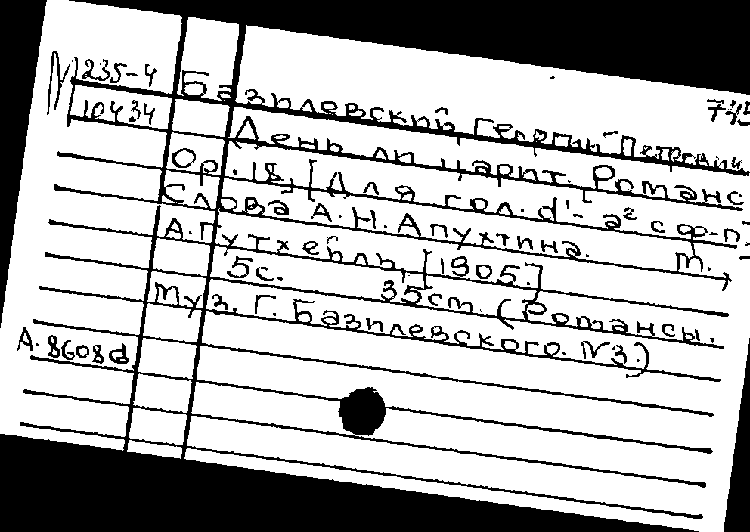 235-4
10434
745
Базилевский, Георгий Петрович
День ли царит. Романс
Ор. 18, [Для гол. d'- a² с ф-п.]
Слова А.Н. Апухтина. М.,
А. Гутхейль, [1905.]
5с. 35см. (Романсы.
Муз. Г. Базилевского. №3.)
А. 8608d